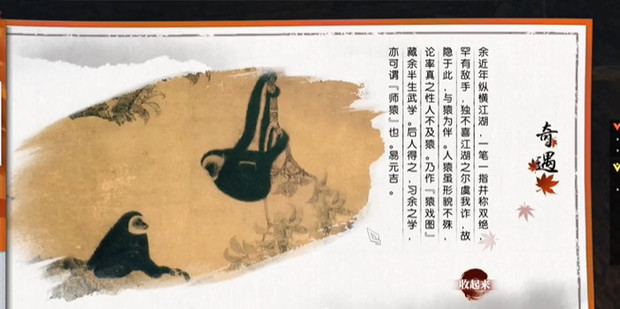 奇遇
余近年纵横江湖，一笔一指并称双绝，
罕有敌手，独不喜江湖之尔虞我诈，故
隐于此，与猿为伴。人猿虽形貌不殊，
论率真之性人不及猿。乃作『猿戏图』
藏余半生武学。后人得之，习余之学，
亦可谓『师猿』也。易元吉。
收起来